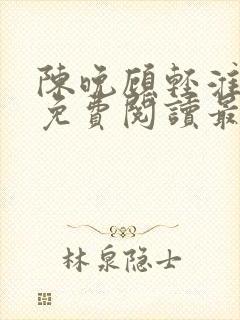 陳晚顧輕淮
免費閱讀最
林泉隐士